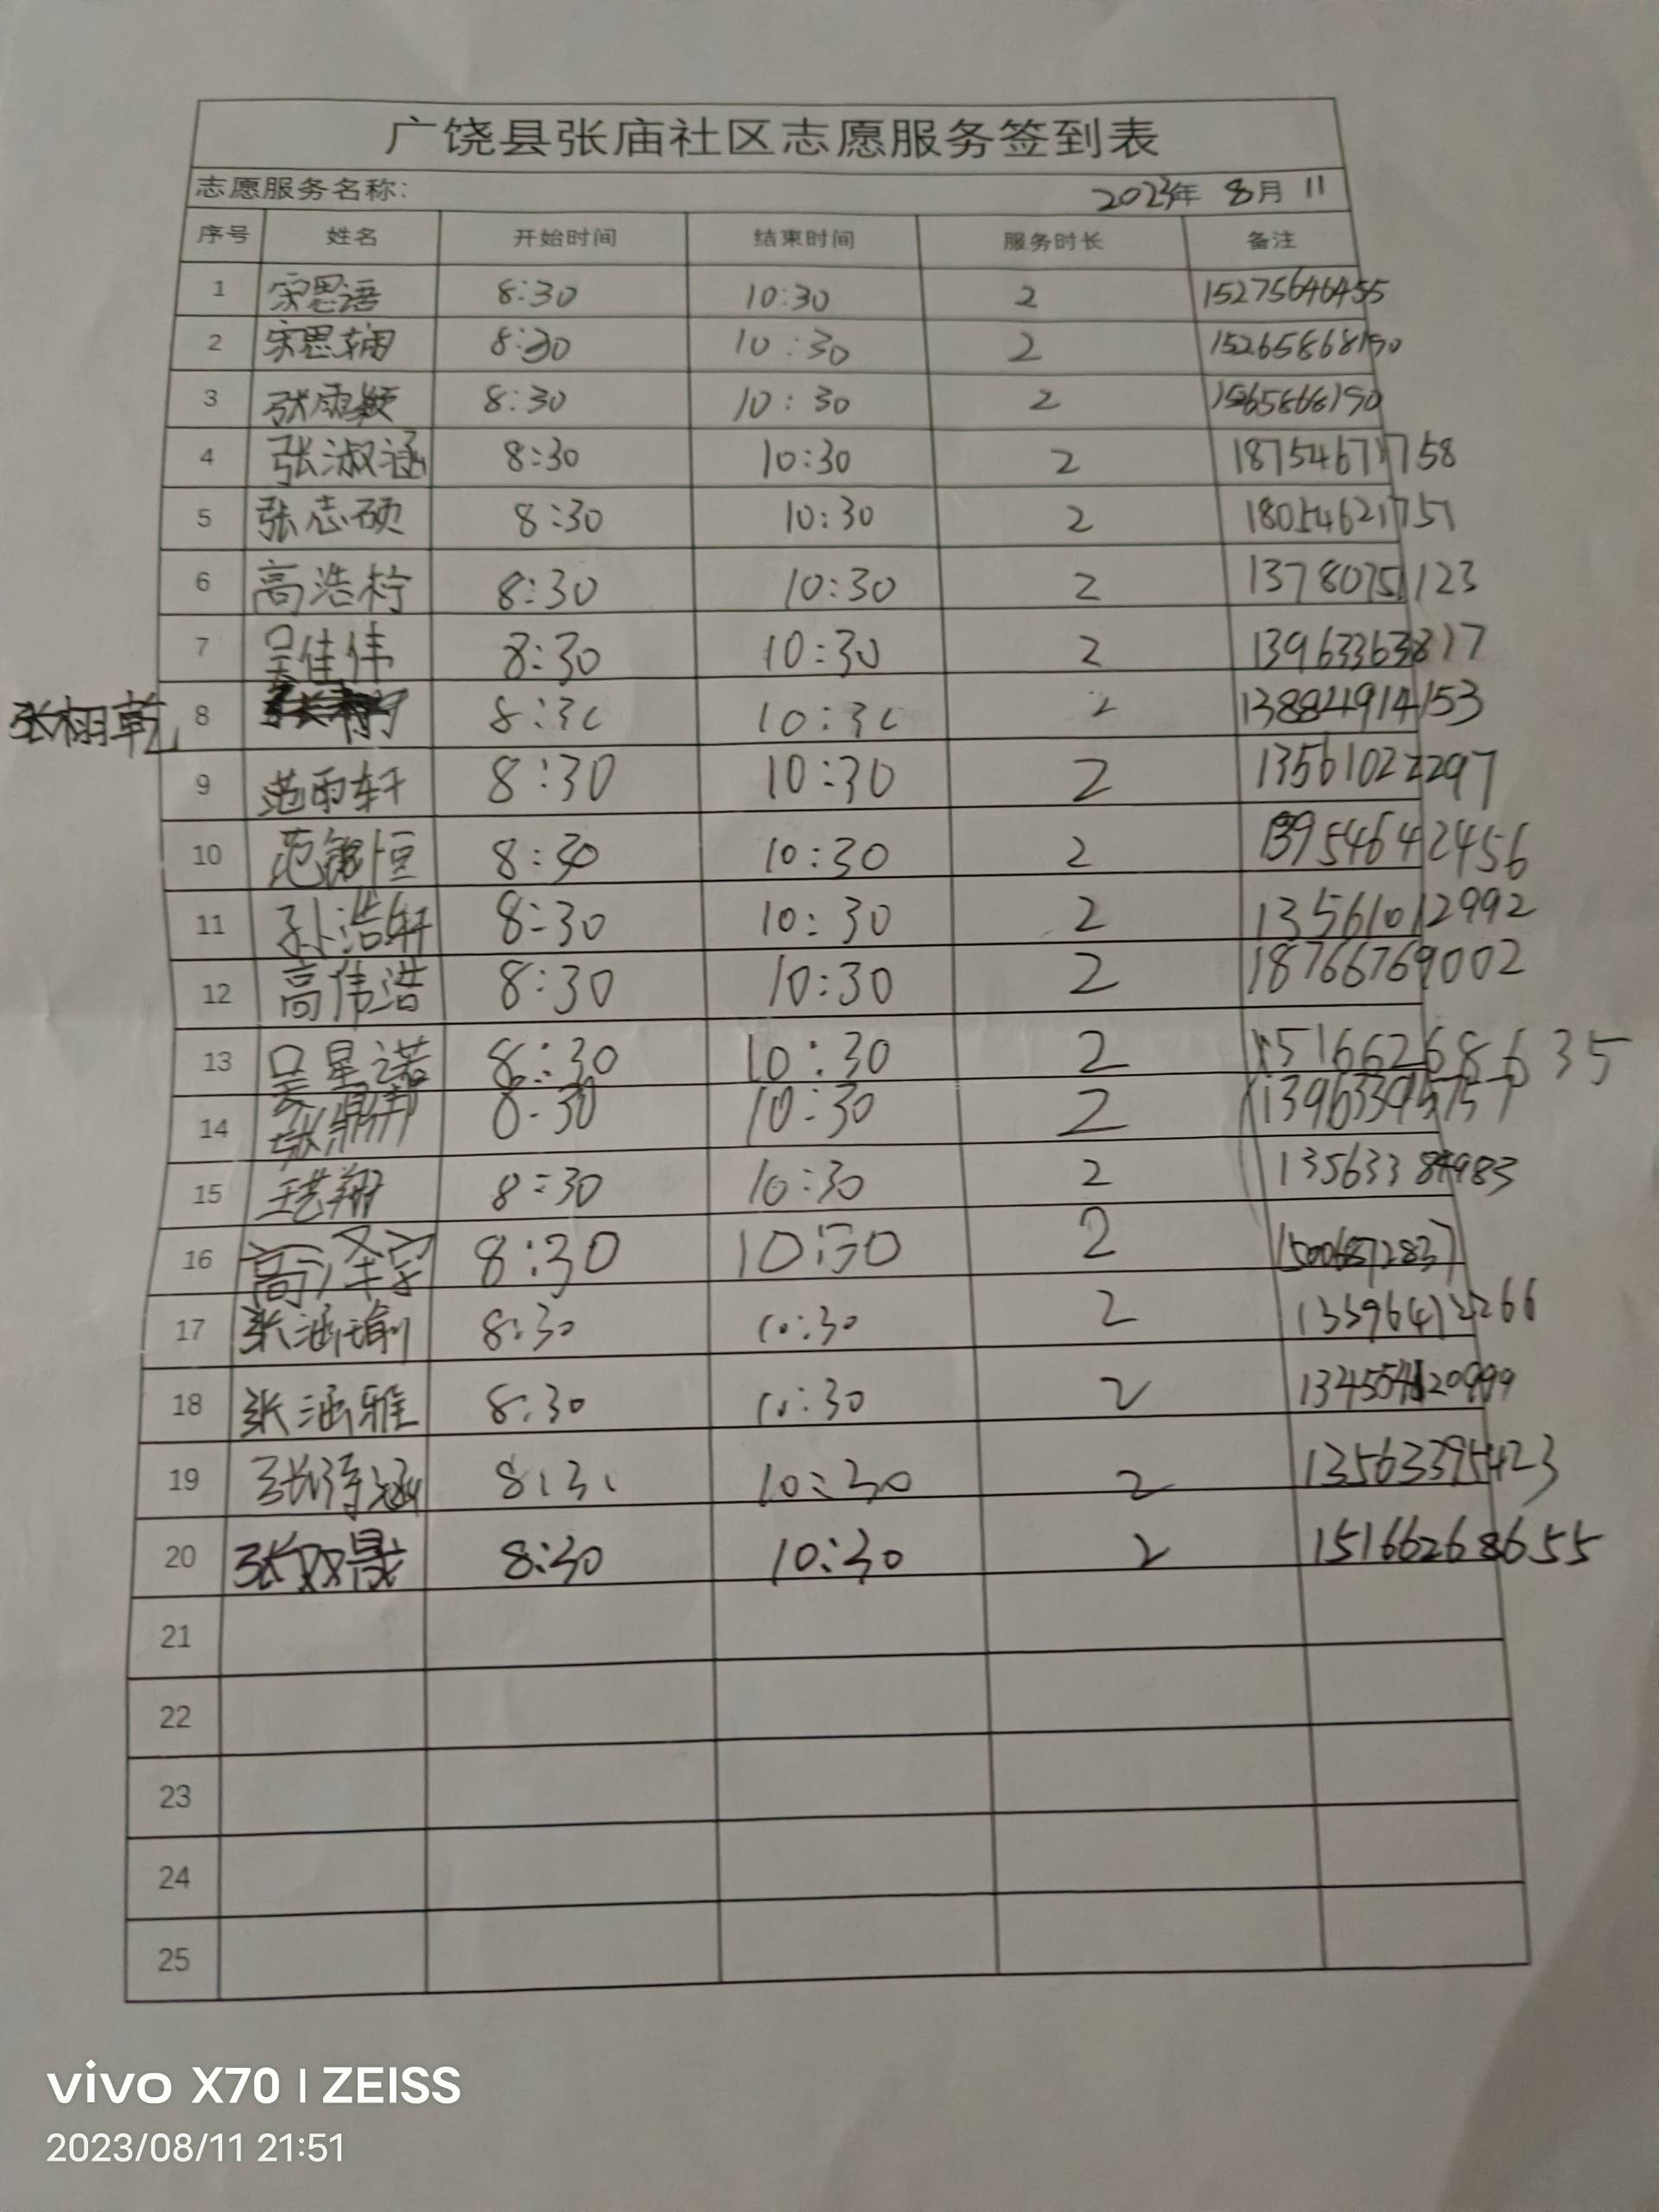 广饶县张庙社区志愿服务签到表
志愿服务名称: 2023年 8月 11
序号 姓名 开始时间 结束时间 服务时长 备注
1 宋思语 8:30 10:30 2 15275646455
2 宋思 8:30 10:30 2 15265868190
3 张雨颖 8:30 10:30 2
4 张淑涵 8:30 10:30 2 18754671758
5 张志硕 8:30 10:30 2 18054621751
6 高浩柠 8:30 10:30 2 13780751123
7 吴佳伟 8:30 10:30 2 13963363817
张栩乾 8 8:30 10:30 2 13884914153
9 范雨轩 8:30 10:30 2 13561022297
10 范 恒 8:30 10:30 2 13954642456
11 孙浩轩 8:30 10:30 2 13561012992
12 高伟浩 8:30 10:30 2 18766769002
13 吴星诺 8:30 10:30 2 15166268635
14 张鼎 8:30 10:30 2
15 王艺翔 8:30 10:30 2
16 高泽宇 8:30 10:30 2 15006872837
17 张涵瑜 8:30 10:30 2 13396412266
18 张涵雅 8:30 10:30 2
19 张诗涵 8:30 10:30 2 13563395423
20 张双晟 8:30 10:30 2 15166268655
21
22
23
24
25
vivo X70 | ZEISS
2023/08/11 21:51